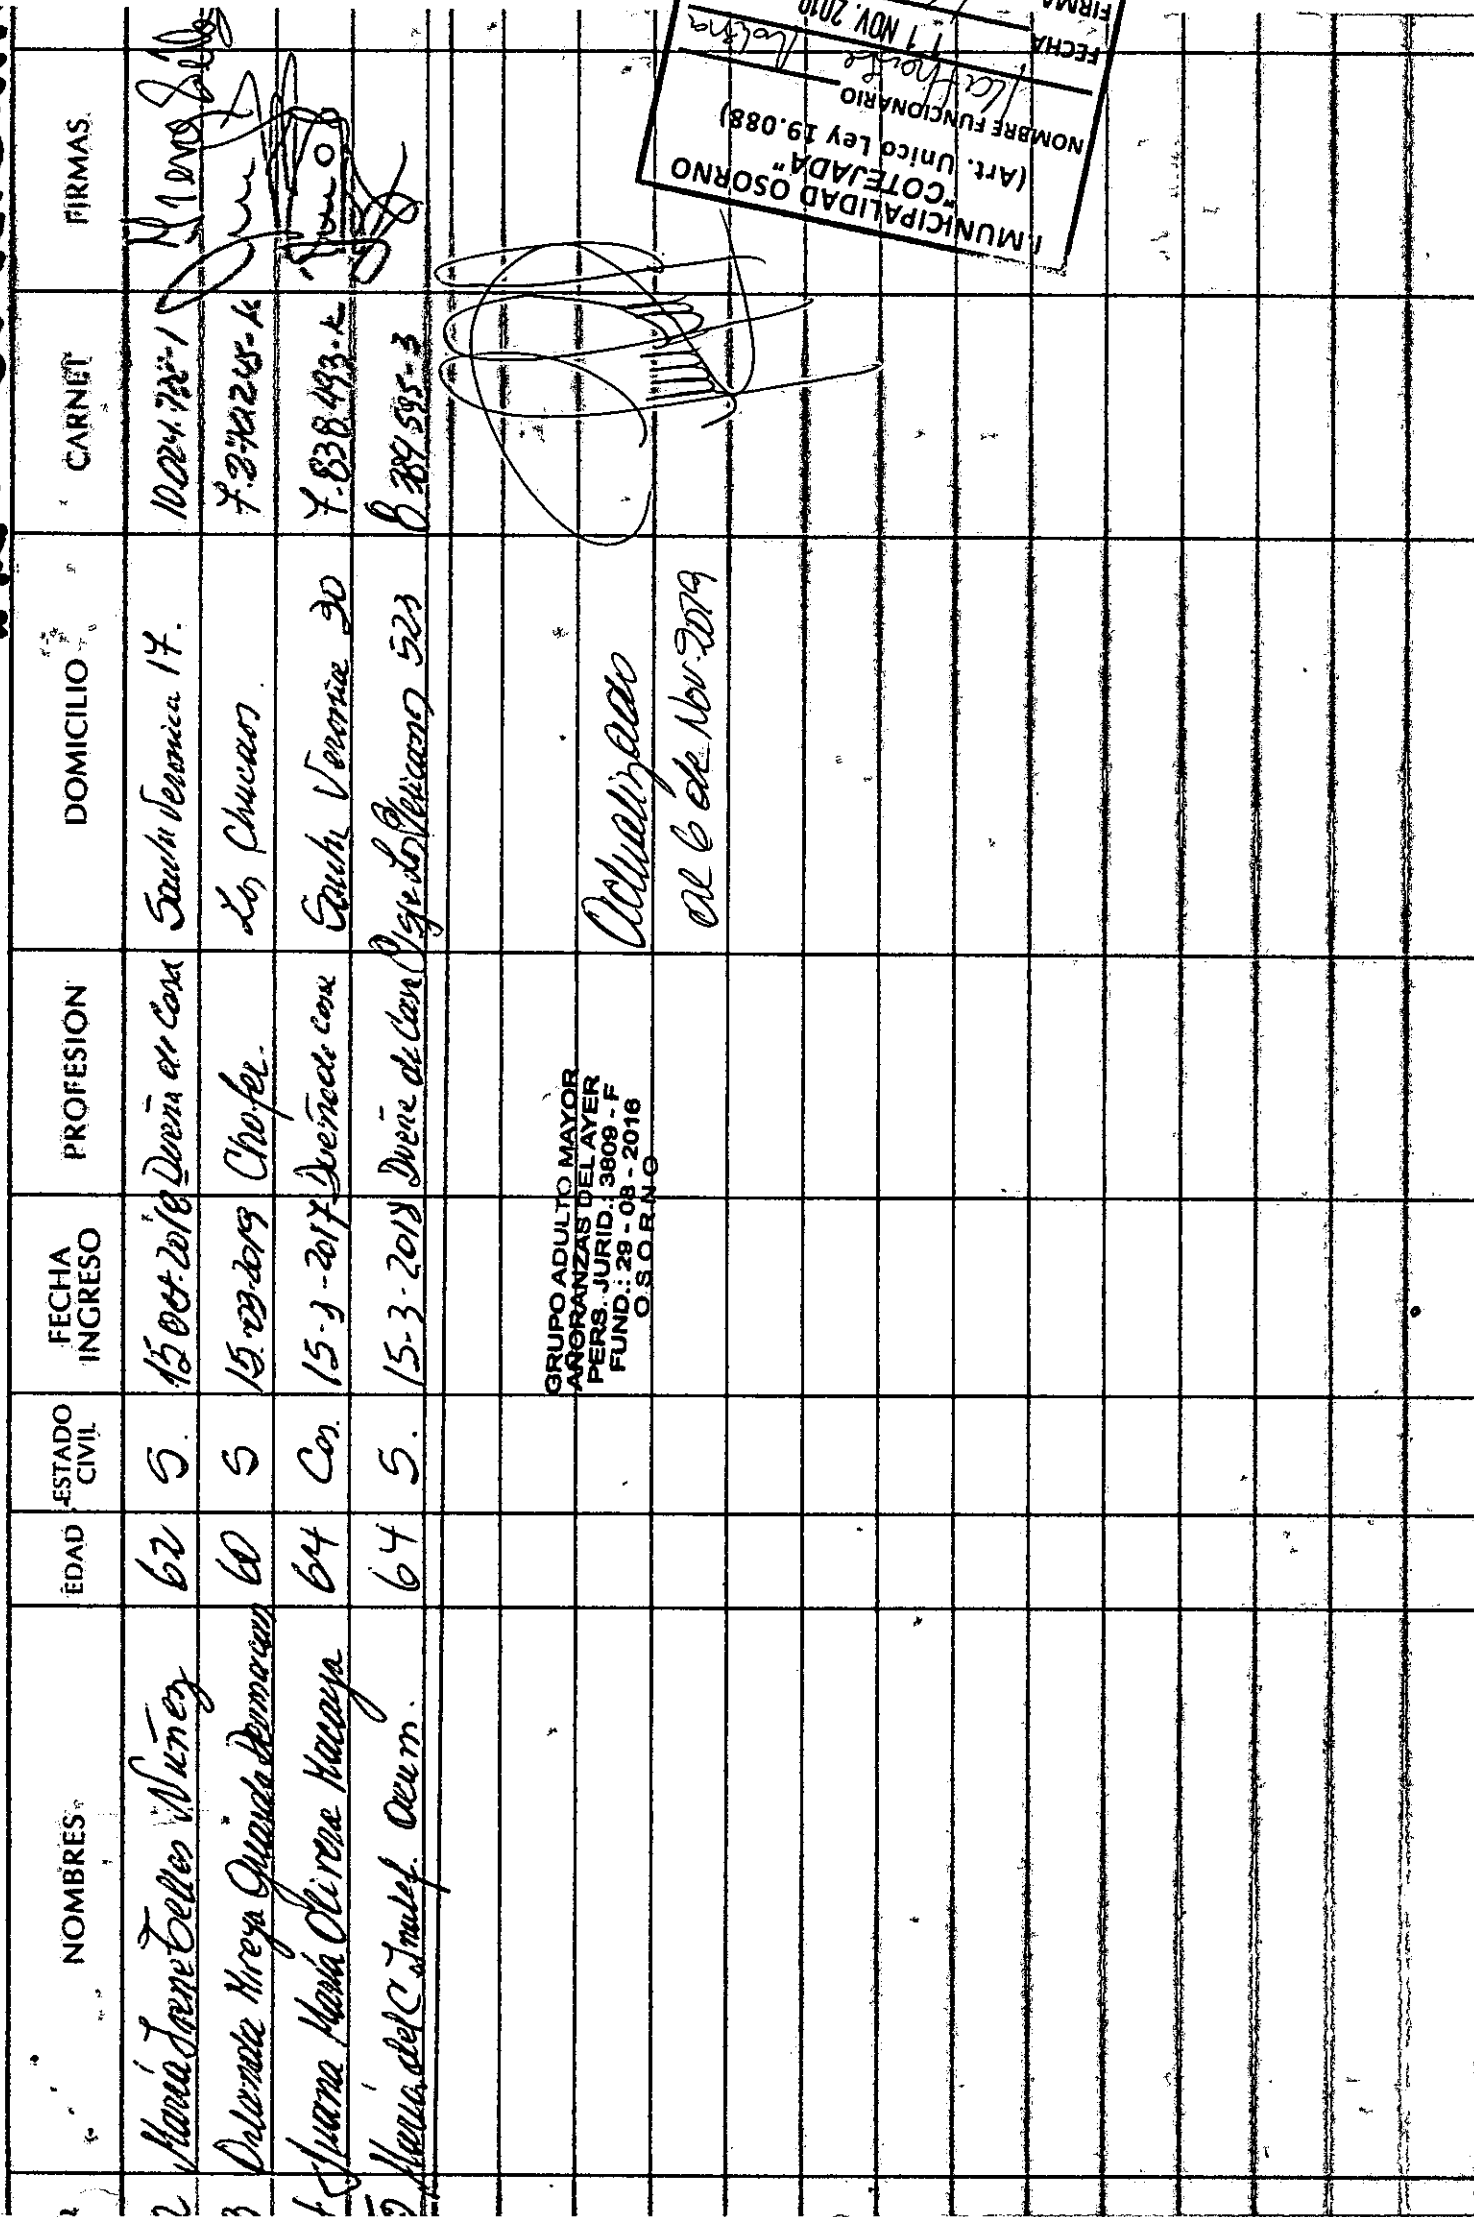 NOMBRES EDAD ESTADO CIVIL FECHA INGRESO PROFESION DOMICILIO CARNET FIRMAS
2 María Tellos Nuñez 62 S. 15 Oct. 2018 Dueña de Casa Santa Veronica 17.
3 Mireya 60 S 15-03-2019 Chofer. Los Chucaos.
4 Juana María Olivera Macaya 64 Cas. 15-3-2017 Dueña de casa Santa Veronica 30 7.838.493-k
5 María del C 64 S. 15-3-2018 Dueña de Casa Psje Los Pelicanos 523 8.384595-3
GRUPO ADULTO MAYOR
AÑORANZAS DEL AYER
PERS. JURID.: 3809 - F
FUND.: 29 - 08 - 2016
O S O R N O
Actualizado
al 6 de Nov. 2019
I. MUNICIPALIDAD OSORNO
"COTEJADA"
(Art. Unico Ley 19.088)
NOMBRE FUNCIONARIO
FECHA 11 NOV. 2019
FIRMA